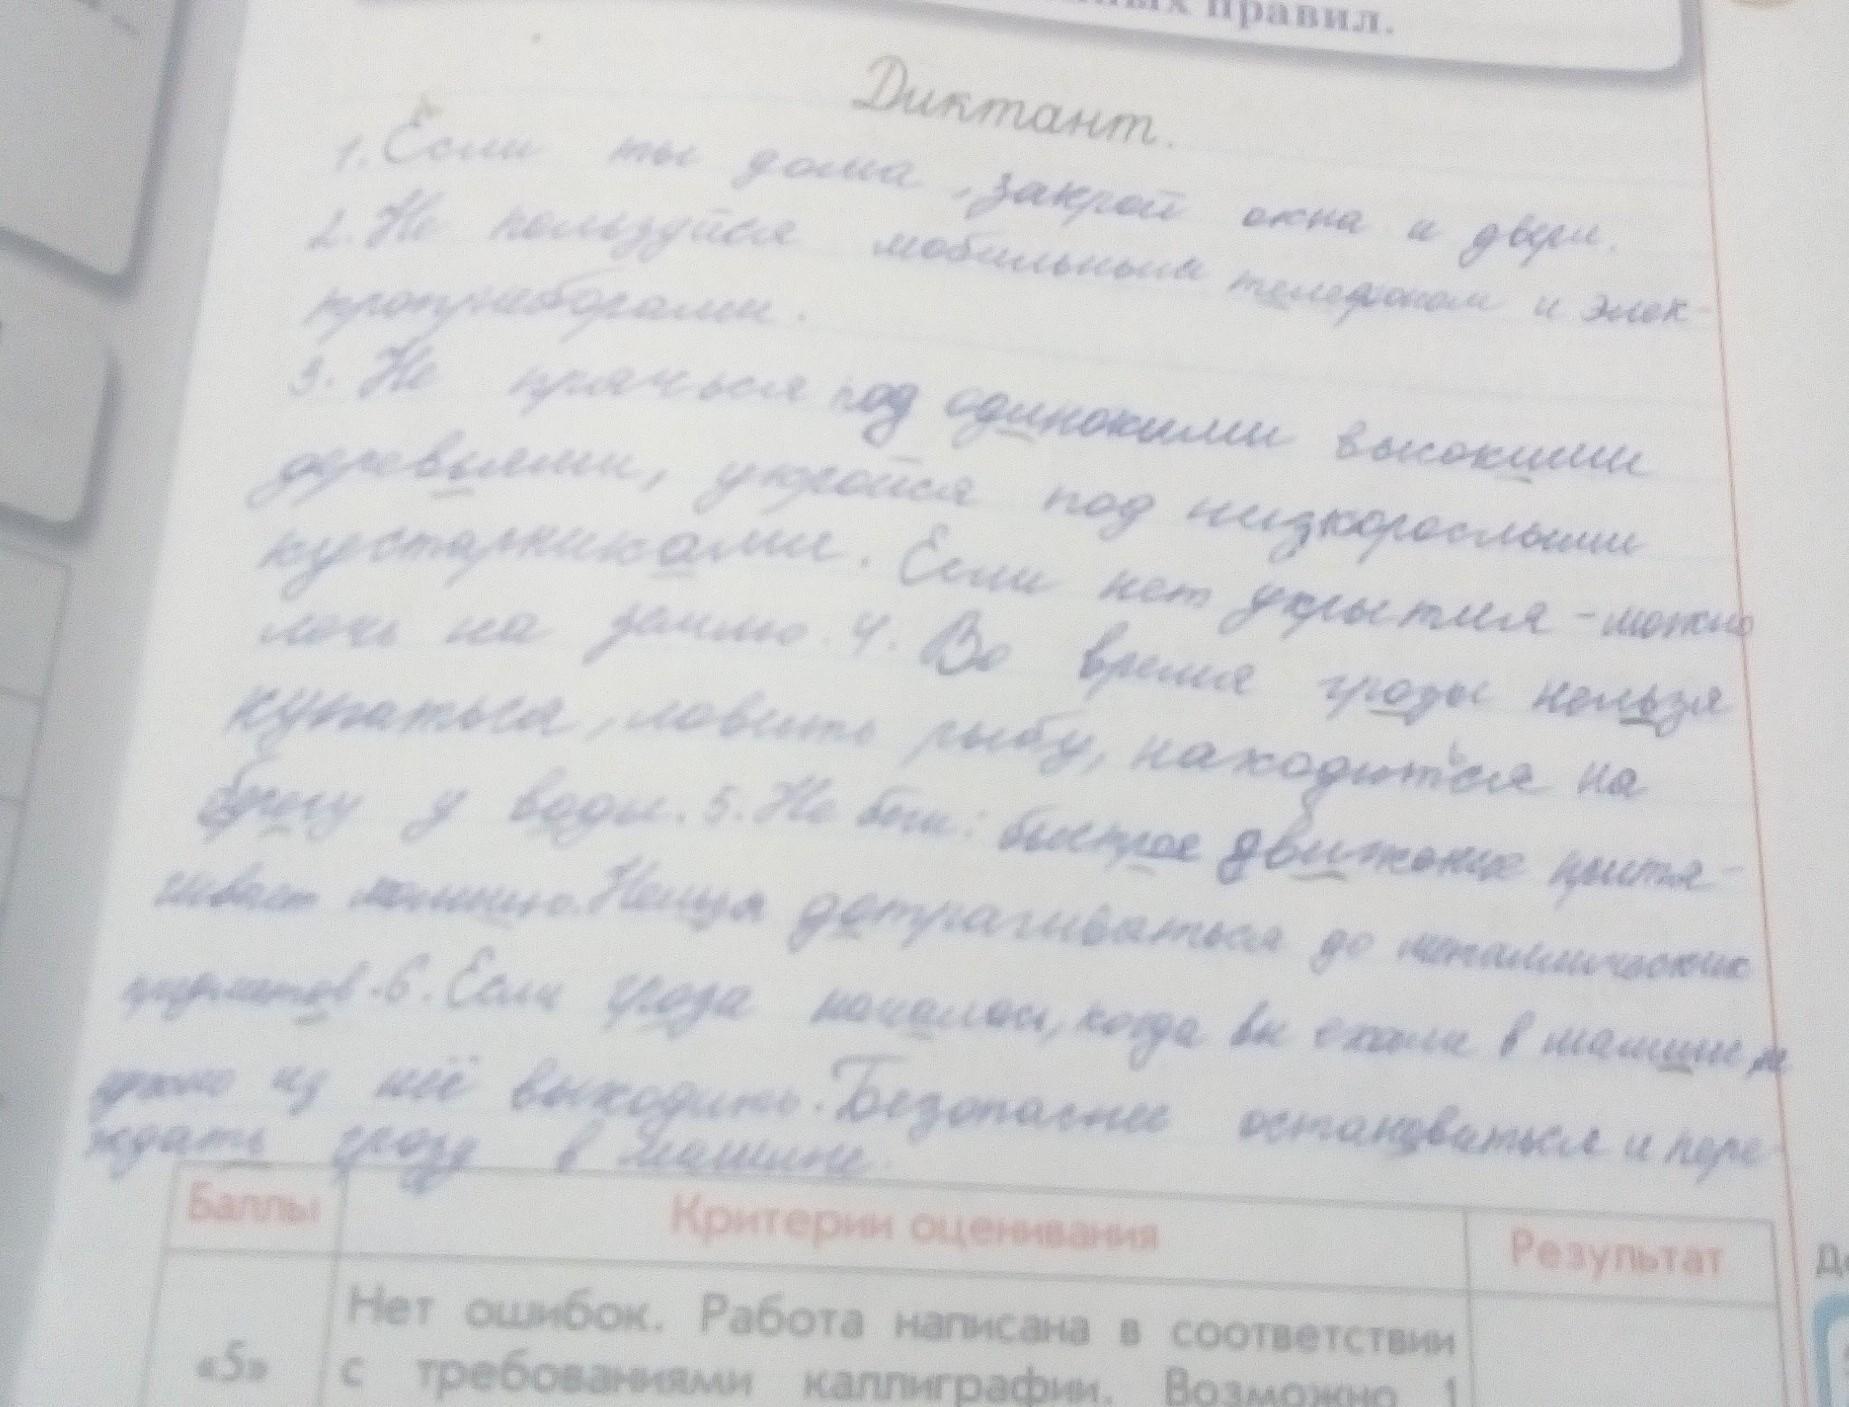 правил.
Диктант.
1. Если ты дома, закрой окна и двери.
2. Не пользуйся мобильным телефоном и элек-
троприборами.
3. Не прячься под одинокими высокими
деревьями, укройся под низкорослыми
кустарниками. Если нет укрытия - можно
лечь на землю. 4. Во время грозы нельзя
купаться, ловить рыбу, находиться на
берегу у воды. 5. Не беги: быстрое движение притя-
гивает молнию. Нельзя дотрагиваться до металлических
предметов. 6. Если гроза началась, когда вы ехали в машине, не
нужно из неё выходить. Безопаснее остановиться и пере-
ждать грозу в машине.
Баллы Критерии оценивания Результат
«5» Нет ошибок. Работа написана в соответствии
с требованиями каллиграфии. Возможно 1